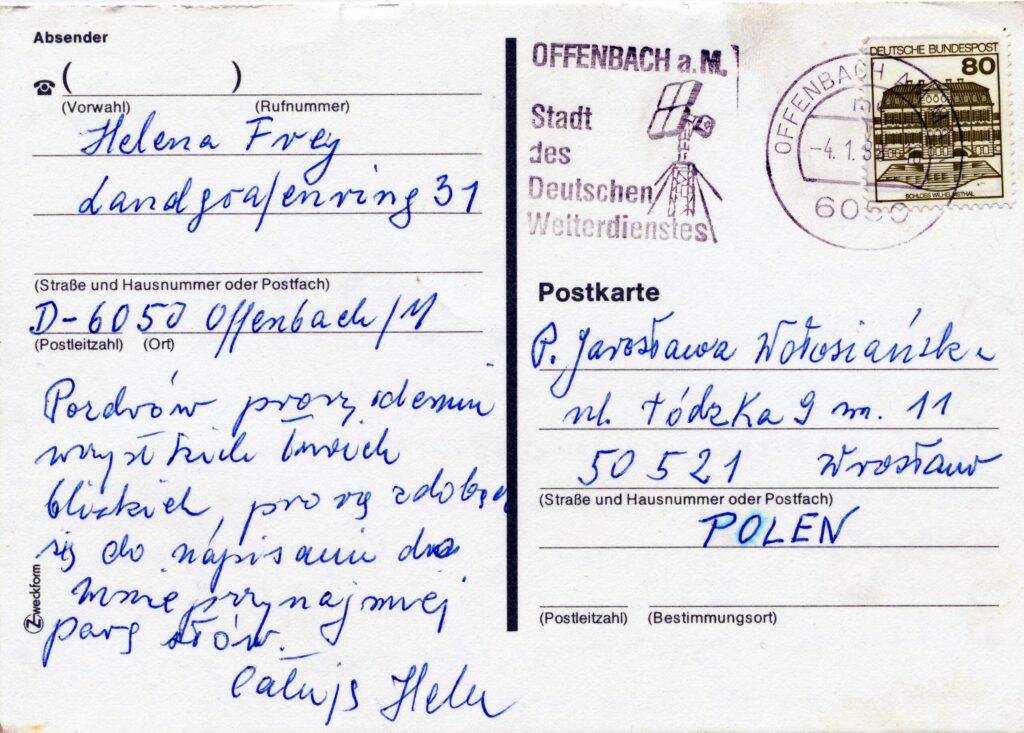 Absender
☎ ( )
(Vorwahl) (Rufnummer)
Helena Frey
Landgrafenring 31
(Straße und Hausnummer oder Postfach)
D-6050 Offenbach/M
(Postleitzahl) (Ort)
Pozdrów proszę odemnie
wszystkich twoich
bliskich, proszę zdobądź
się do napisania dla
mnie przynajmniej
parę słów.
Całuję Hela
Zweckform
OFFENBACH a. M.
Stadt
des
Deutschen
Wetterdienstes
OFFENBACH AM
-4.1.8
6050
DEUTSCHE BUNDESPOST
80
SCHLOSS WILHELMSTHAL
Postkarte
P. Jarosława Wołosiańska
ul. Łódzka 9 m. 11
50 521 Wrosław
(Straße und Hausnummer oder Postfach)
POLEN
(Postleitzahl) (Bestimmungsort)